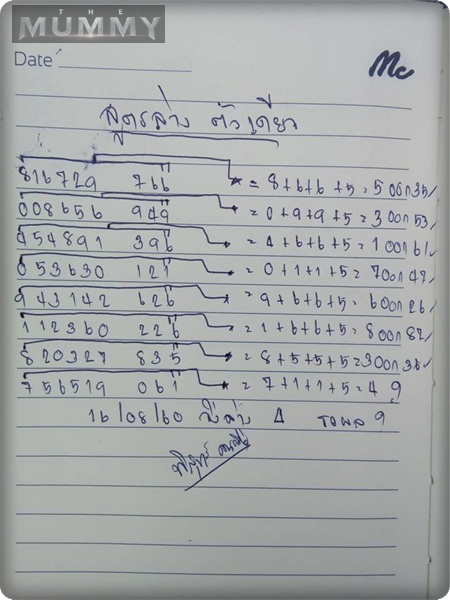 THE
MUMMY
Date
Mc
สูตรล่าง ตัวเดียว
816729 766 = 8+6+6+5=5 ออก 35 ✓
008656 949 = 0+9+9+5=3 ออก 53 ✓
454891 396 = 4+6+6+5=1 ออก 61 ✓
053630 121 = 0+1+1+5=7 ออก 47 ✓
943142 626 = 9+6+6+5=6 ออก 26 ✓
112360 226 = 1+6+6+5=8 ออก 82 ✓
820327 835 = 8+5+5+5=3 ออก 38 ✓
756519 061 = 7+1+1+5=4 9
16/08/60 วิ่งล่าง 4 รอผล 9